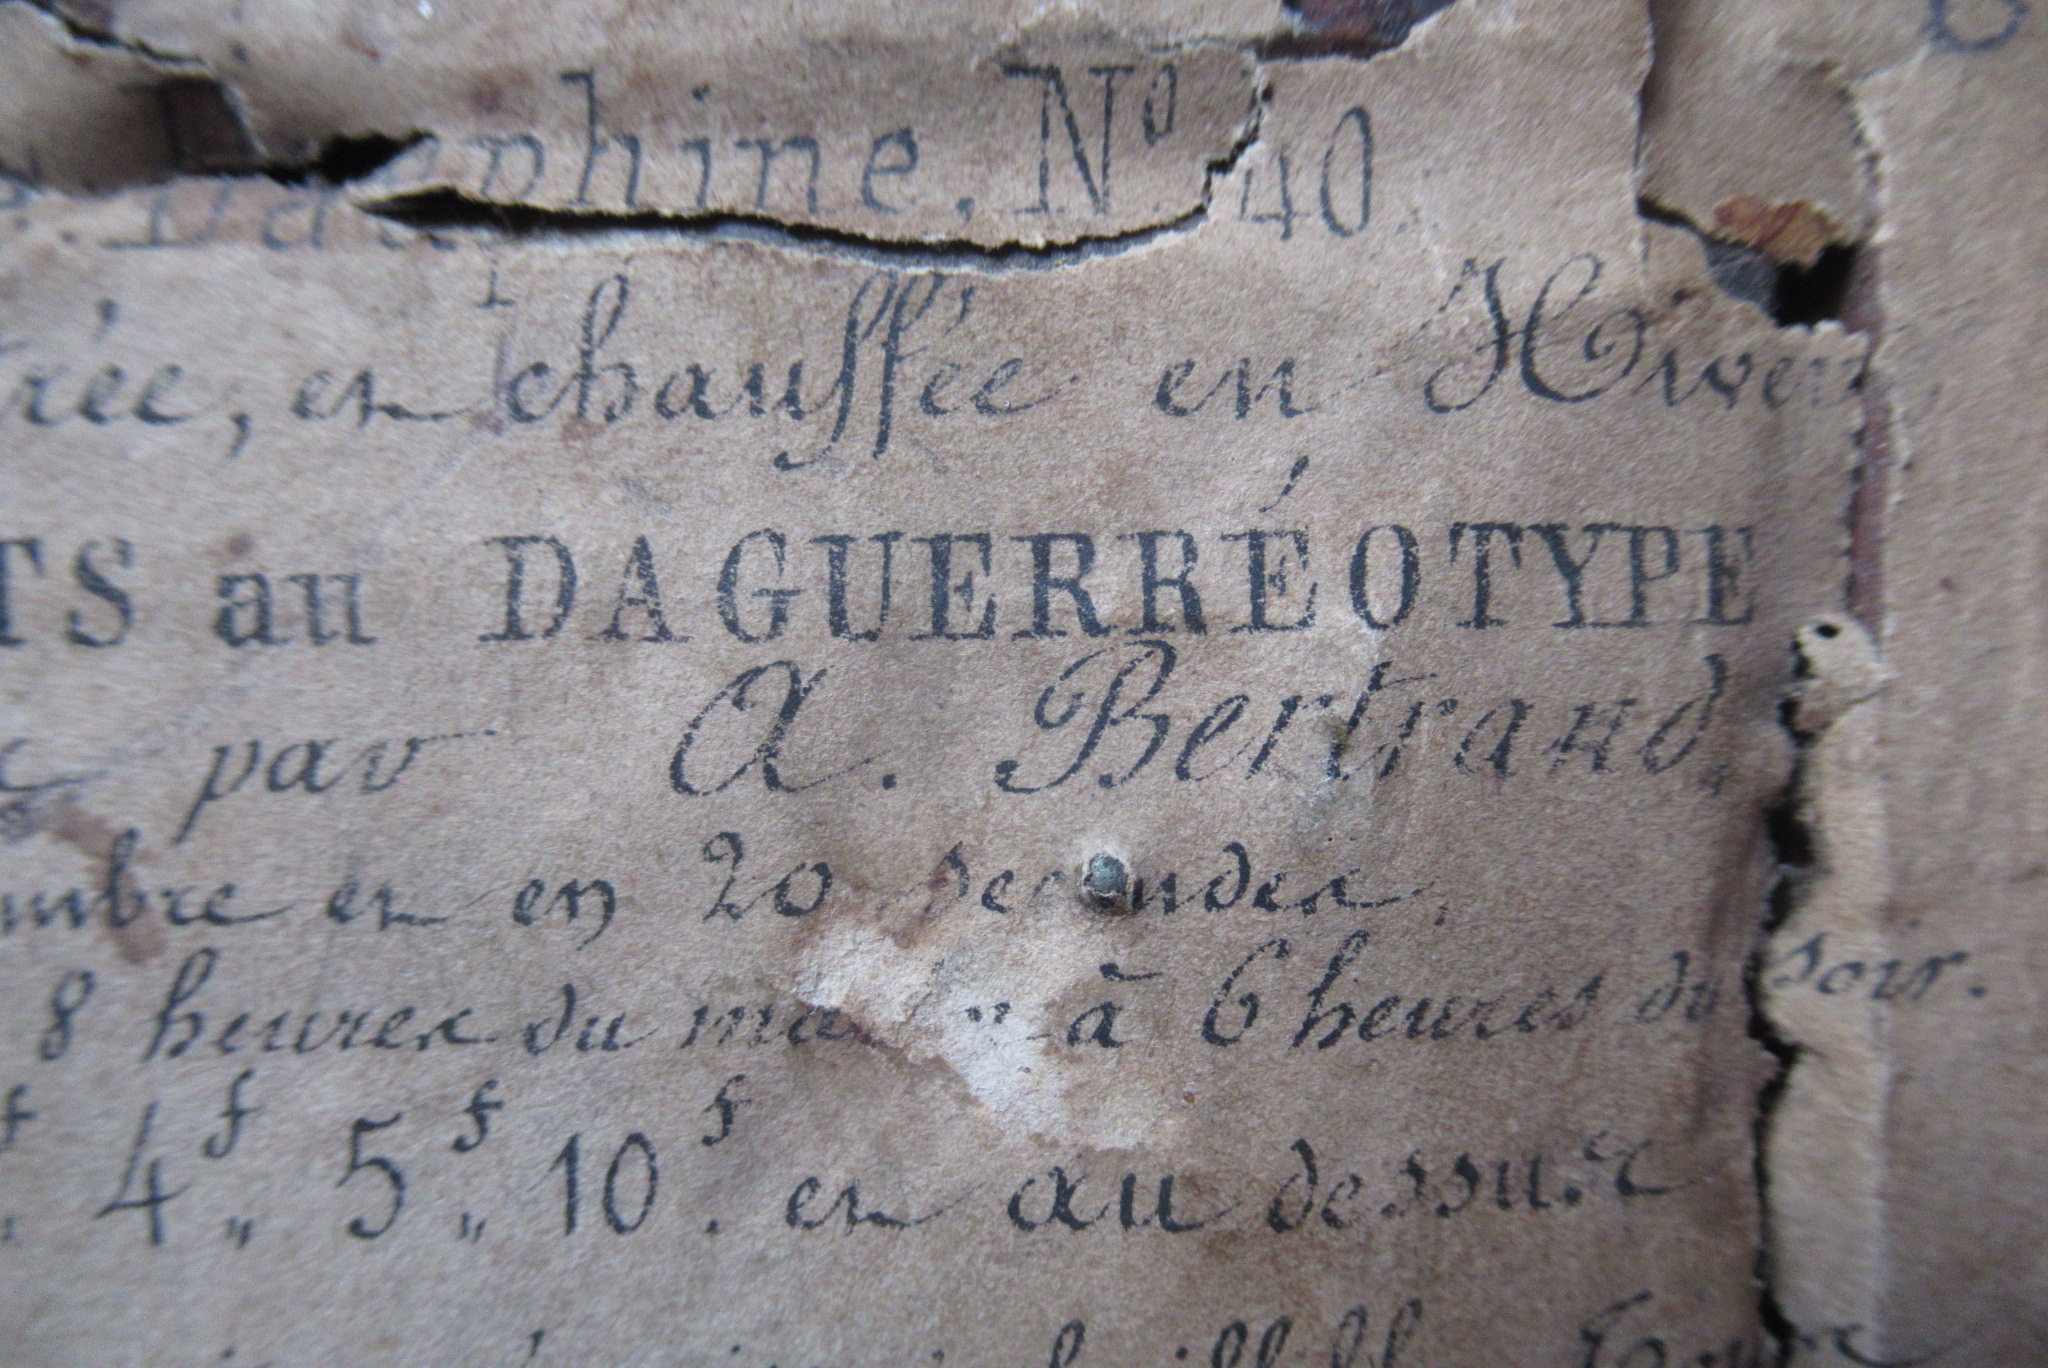 Dauphine. Nº 40.
rée, et chauffée en Hiver
TS au DAGUERRÉOTYPE
par A. Bertrand,
mbre et en 20 secondes,
8 heures du matin à 6 heures du soir.
4f „ 5f „ 10f. et au dessus